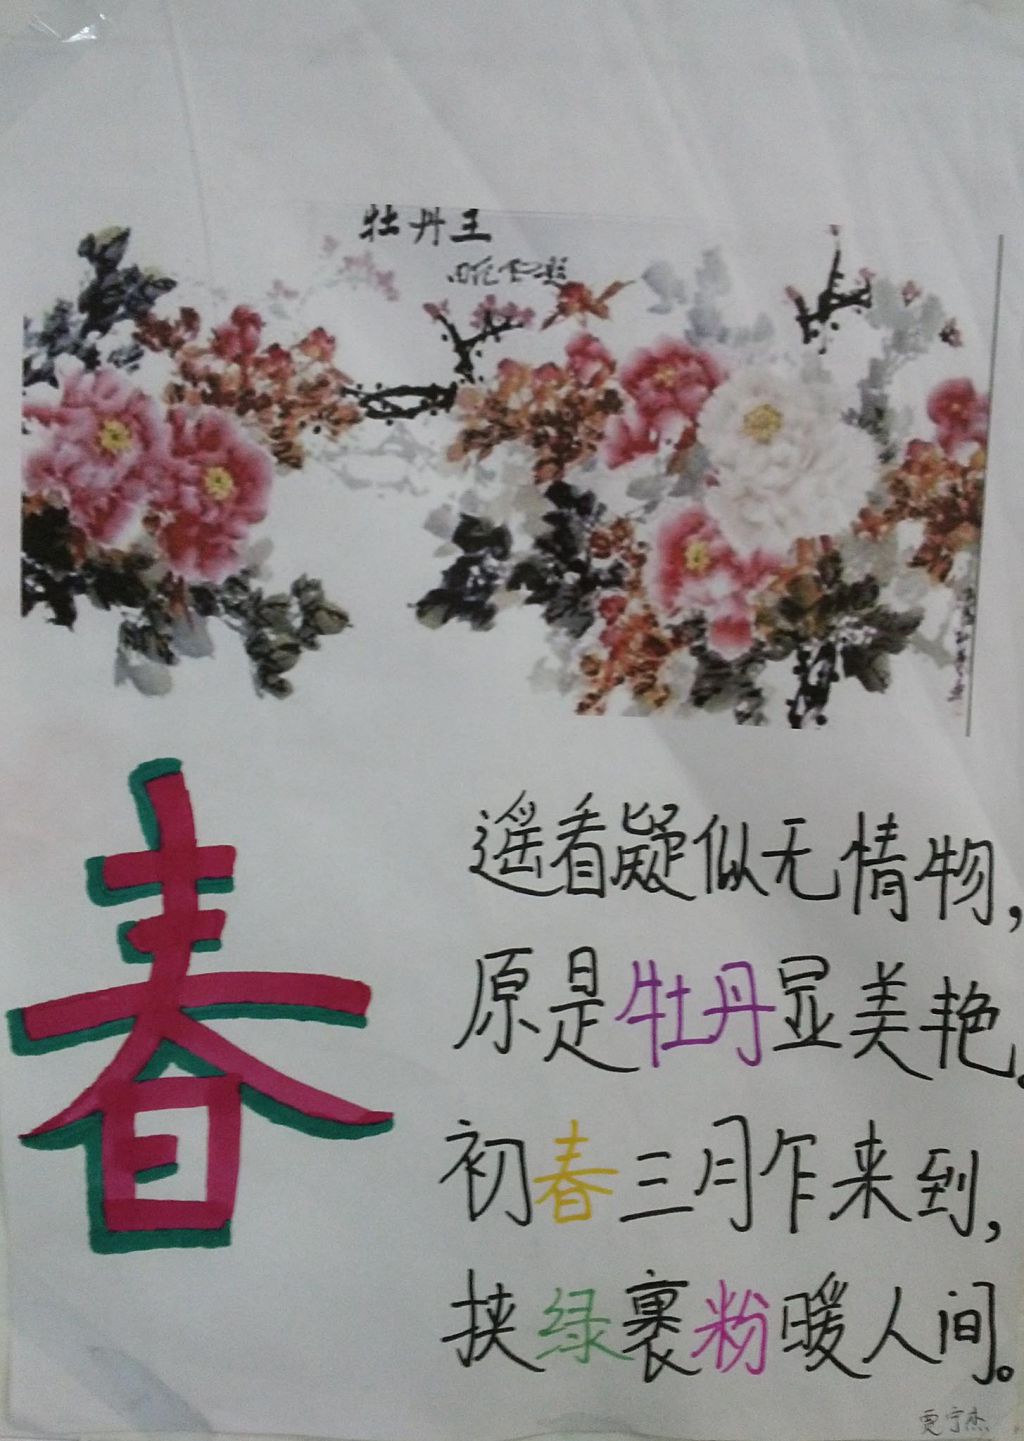 牡丹王
春
遥看疑似无情物，
原是牡丹显美艳。
初春三月乍来到，
挟绿裹粉暖人间。
贾宁杰